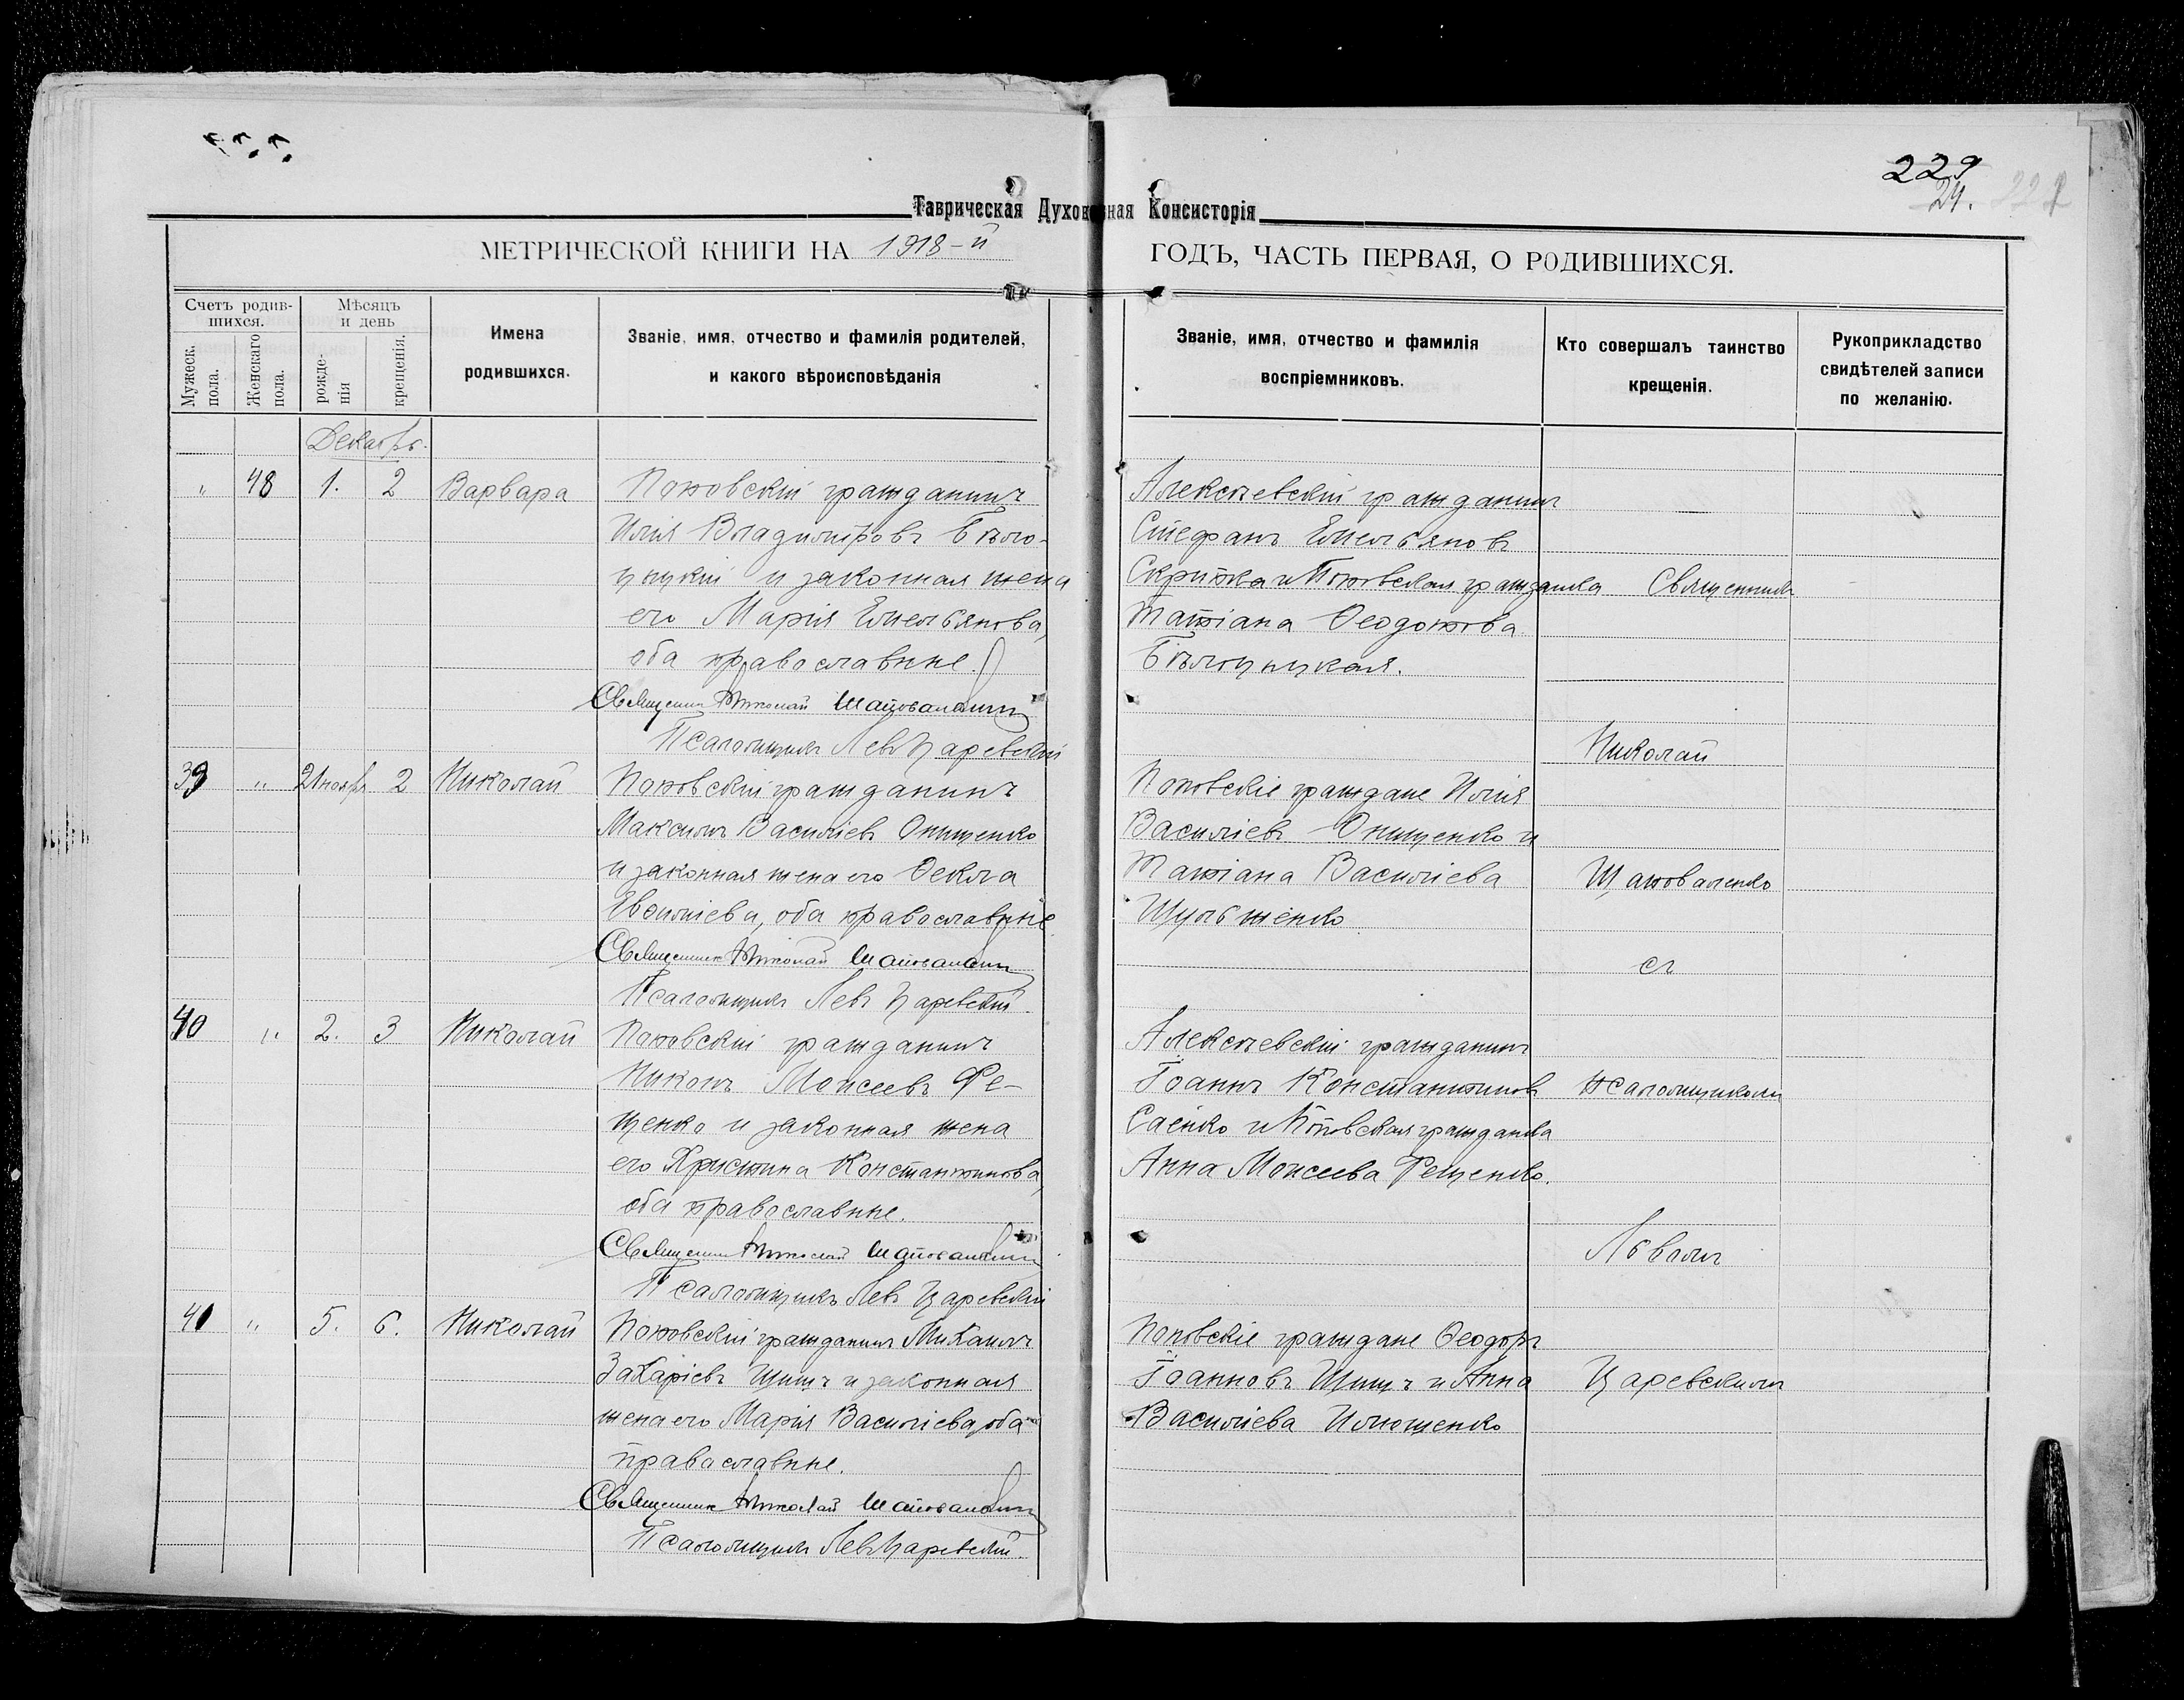 229
24.
Таврическая Духовная Консисторія
МЕТРИЧЕСКОЙ КНИГИ НА 1918-й ГОДЪ, ЧАСТЬ ПЕРВАЯ, О РОДИВШИХСЯ.
Счетъ родив-
шихся.
Мужеск. пола.
Женскаго пола.
Мѣсяцъ
и день
рожде-
нія
крещенія.
Имена
родившихся.
Званіе, имя, отчество и фамилія родителей,
и какого вѣроисповѣданія
Званіе, имя, отчество и фамилія
воспріемниковъ.
Кто совершалъ таинство
крещенія.
Рукоприкладство
свидѣтелей записи
по желанію.
Декабрь.
" 48 1. 2 Варвара
Поповскій гражданинъ
Илія Владиміровъ Бѣло-
цицкій и законная жена
его Марія Емельянова,
оба православные.
Священникъ Николай Шаповаленко
Псаломщикъ Левъ Царевскій
Алексѣевскій гражданинъ
Стефанъ Емельяновъ
Скрипка и Поповская гражданка
Татіана Ѳеодотова
39 " 21 ноября 2 Николай
Поповскій гражданинъ
Максимъ Василіевъ Онищенко
и законная жена его Ѳекла
оба православные
Священникъ Николай Шаповаленко
Псаломщикъ Левъ Царевскій.
Поповскіе граждане Илія
Василіевъ Онищенко и
Татіана Василіева
Шульженко
40 " 2. 3 Николай
Поповскій гражданинъ
Никонъ Моисеевъ Фе-
щенко и законная жена
его Христина Константинова,
оба православные.
Священникъ Николай Шаповаленко
Псаломщикъ Левъ Царевскій
Алексѣевскій гражданинъ
Іоаннъ Константиновъ
Саенко и Поповская гражданка
Анна Моисеева Фещенко.
41 " 5. 6. Николай
Поповскій гражданинъ Михаилъ
Захаріевъ Щищъ и законная
жена его Марія Василіева, оба
православные.
Священникъ Николай Шаповаленко
Псаломщикъ Левъ Царевскій.
Поповскіе граждане Ѳеодоръ
Іоанновъ Щищъ и Анна
Василіева Ильющенко
Священникъ
Николай
Шаповаленко
съ
псаломщикомъ
Львомъ
Царевскимъ